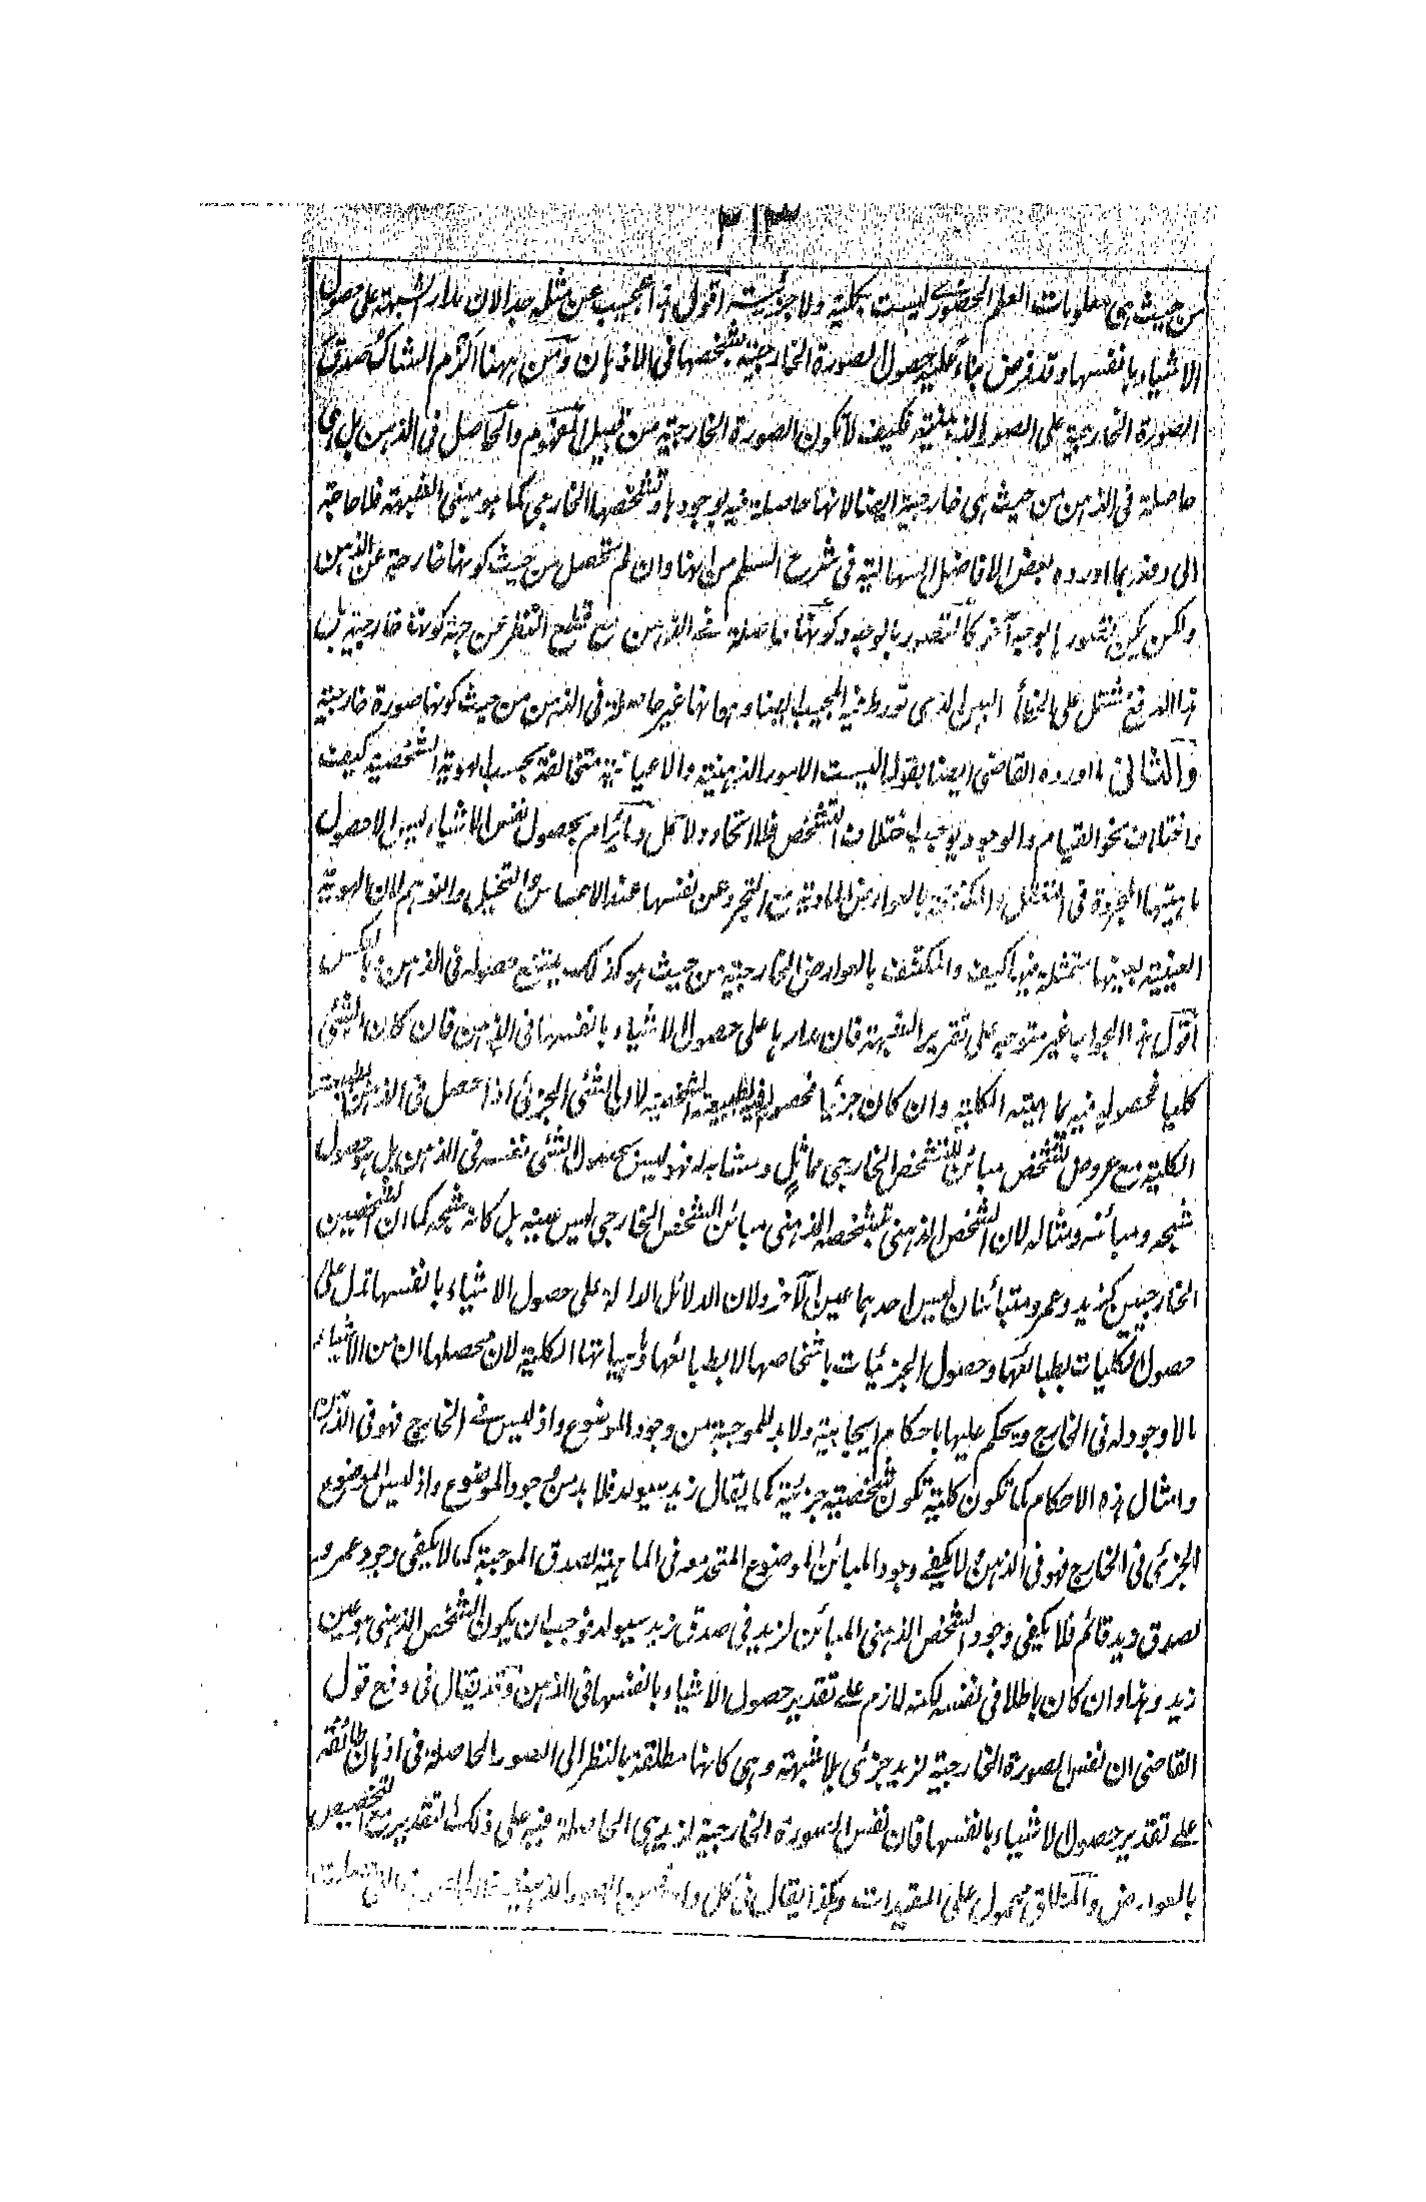 ٣١٣
من حيث هى معلومات العلم الحضورى ليست بكلية ولا جزئية اقول هذا عجيب عن مثله جدا لان مدار الشبهة على حصول
الاشياء بانفسها وقد فرض بناء عليه حصول الصورة الخارجية بتشخصها فى الاذهان ومن ههنا الزم الشاك صدق
الصورة الخارجية على الصور الذهنية فكيف لا تكون الصورة الخارجية من قبيل المفهوم والحاصل فى الذهن بل هى
حاصلة فى الذهن من حيث هى خارجية ايضا لانها حاصلة فيه بوجودها وتشخصها الخارجى كما هو مبنى الشبهة فلا حاجة
الى دفعه بما اورده بعض الافاضل السهالية فى شرح السلم من انها وان لم تحصل من حيث كونها خارجية عن الذهن
ولكن يمكن تصورها بوجه آخر كالتصور بالوجه وكونها حاصلة فى الذهن مع قطع النظر عن جهة كونه خارجية
هذا الدفع مشتمل على الخطأ البين الذى تورط فيه المجيب ايضا وهو انها غير حاصلة فى الذهن من حيث كونها صورة خارجية
والثانى ما اورده القاضى ايضا بقوله اليست الامور الذهنية والاعيانية متخالفة بحسب الهوية الشخصية كيف
واختلاف نحو القيام والوجود يوجب اختلاف التشخص فلا اتحاد ولا حمل وما يرام بحصول نفس الاشياء ليس الا حصول
ماهيتها المجردة فى التعقل والمكتنفة بالعوارض المادية مع التجرد عن نفسها عند الاحساس والتخيل والتوهم لان الهوية
العينية بعينها متمثلة فيها كيف والمكتنف بالعوارض الخارجية من حيث هو كذلك يمتنع حصوله فى الذهن وبالعكس
اقول هذا الجواب غير متوجه على تقرير الشبهة فان مدارها على حصول الاشياء بانفسها فى الذهن فان كان الشئ
كليا فحصوله فيه بماهيته الكلية وان كان جزئيا فحصوله فيه بطبيعته الشخصية لا ان الشئ الجزئى اذا حصل فى الذهن بطبيعته
الكلية مع عروض تشخص مبائن للتشخص الخارجى مماثل ومشابه له فهو ليس بحصول الشئ نفسه فى الذهن بل هو حصول
شبحه ومبائنه ومثاله لان الشخص الذهنى بتشخصه الذهنى مبائن للشخص الخارجى ليس عينه بل كانه شبحه كما ان الشخصين
الخارجيين كزيد وعمرو متبائنان ليس احدهما عين الآخر ولان الدلائل الدالة على حصول الاشياء بانفسها تدل على
حصول الكليات بطبائعها وحصول الجزئيات باشخاصها لا بطبائعها وماهياتها الكلية لان محصلها ان من الاشياء
ما لا وجود له فى الخارج ويحكم عليها باحكام ايجابية ولا بد للموجبة من وجود الموضوع واذ ليس فى الخارج فهو فى الذهن
وامثال هذه الاحكام كما تكون كلية تكون شخصية جزئية كما يقال زيد سيولد فلا بد من وجود الموضوع واذ ليس الموضوع
الجزئى فى الخارج فهو فى الذهن ولا يكفى وجود المبائن للموضوع المتحد معه فى الماهية لصدق الموجبة كما لا يكفى وجود عمرو
لصدق زيد قائم فلا يكفى وجود الشخص الذهنى المبائن لزيد فى صدق زيد سيولد فوجب ان يكون الشخص الذهنى هو عين
زيد وهذا وان كان باطلا فى نفسه لكنه لازم على تقدير حصول الاشياء بانفسها فى الذهن وقد يقال فى دفع قول
القاضى ان نفس الصورة الخارجية لزيد جزئى بلا شبهة وهى كانها مطلقة بالنظر الى الصور الحاصلة فى اذهان طائفة
على تقدير حصول الاشياء بانفسها فان نفس الصورة الخارجية لزيد هى الحاصلة فيه على ذلك التقدير مع التخصيص
بالعوارض والمطلق محمول على المقيدات وهكذا يقال فى كل